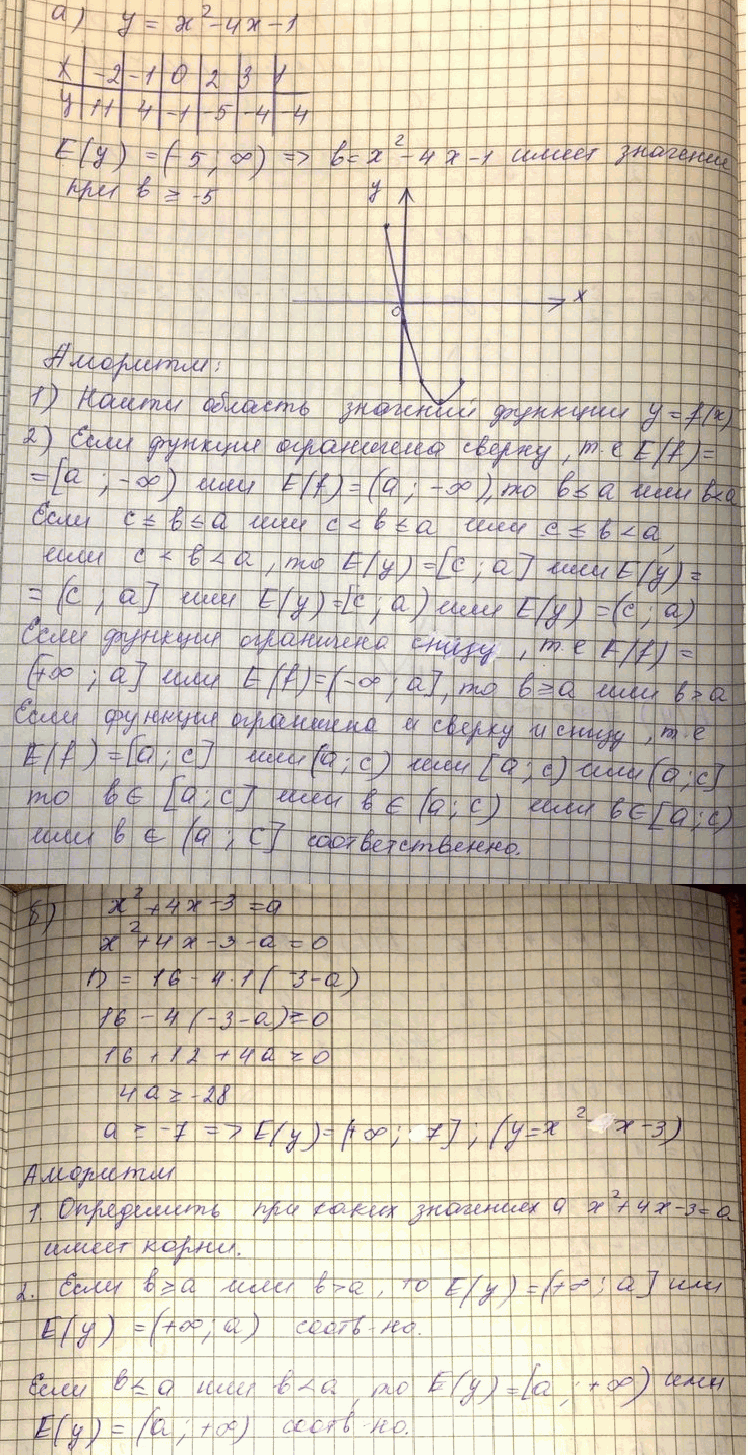 а) y = x²-4x-1
x | -2 | -1 | 0 | 2 | 3 | 1
y | 11 | 4 | -1 | -5 | -4 | -4
E(y) = (-5; ∞) => b=x²-4x-1 имеет значение
при b ≥ -5
y
x
0
Алгоритм:
1) Найти область значений функции y=f(x)
2) Если функция ограничена сверху, т.е E(f)=
=[a ; -∞) или E(f)=(a ; -∞), то b≤a или b<a
Если c≤b≤a или c<b≤a или c≤b<a,
или c<b<a, то E(y)=[c ; a] или E(y)=
= (c ; a] или E(y)=[c ; a) или E(y)=(c ; a)
Если функция ограничена снизу, т.е E(f)=
(+∞ ; a] или E(f)=(-∞ ; a], то b≥a или b>a
Если функция ограничена и сверху и снизу, т.е
E(f)=[a ; c] или (a ; c) или [a ; c) или (a ; c]
то b∈[a ; c] или b∈(a ; c) или b∈[a ; c)
или b∈(a ; c] соответственно.
б) x²+4x-3=a
x²+4x-3-a=0
D = 16-4·1(-3-a)
16-4(-3-a)≥0
16+12+4a≥0
4a≥-28
a≥-7 => E(y)=(+∞; -7]; (y=x² x-3)
Алгоритм
1. Определить при каких значениях a x²+4x-3=a
имеет корни.
2. Если b≥a или b>a, то E(y)=(+∞; a] или
E(y)=(+∞; a) соотв-но.
Если b≤a или b<a, то E(y)=[a ; +∞) или
E(y)=(a ; +∞) соотв-но.